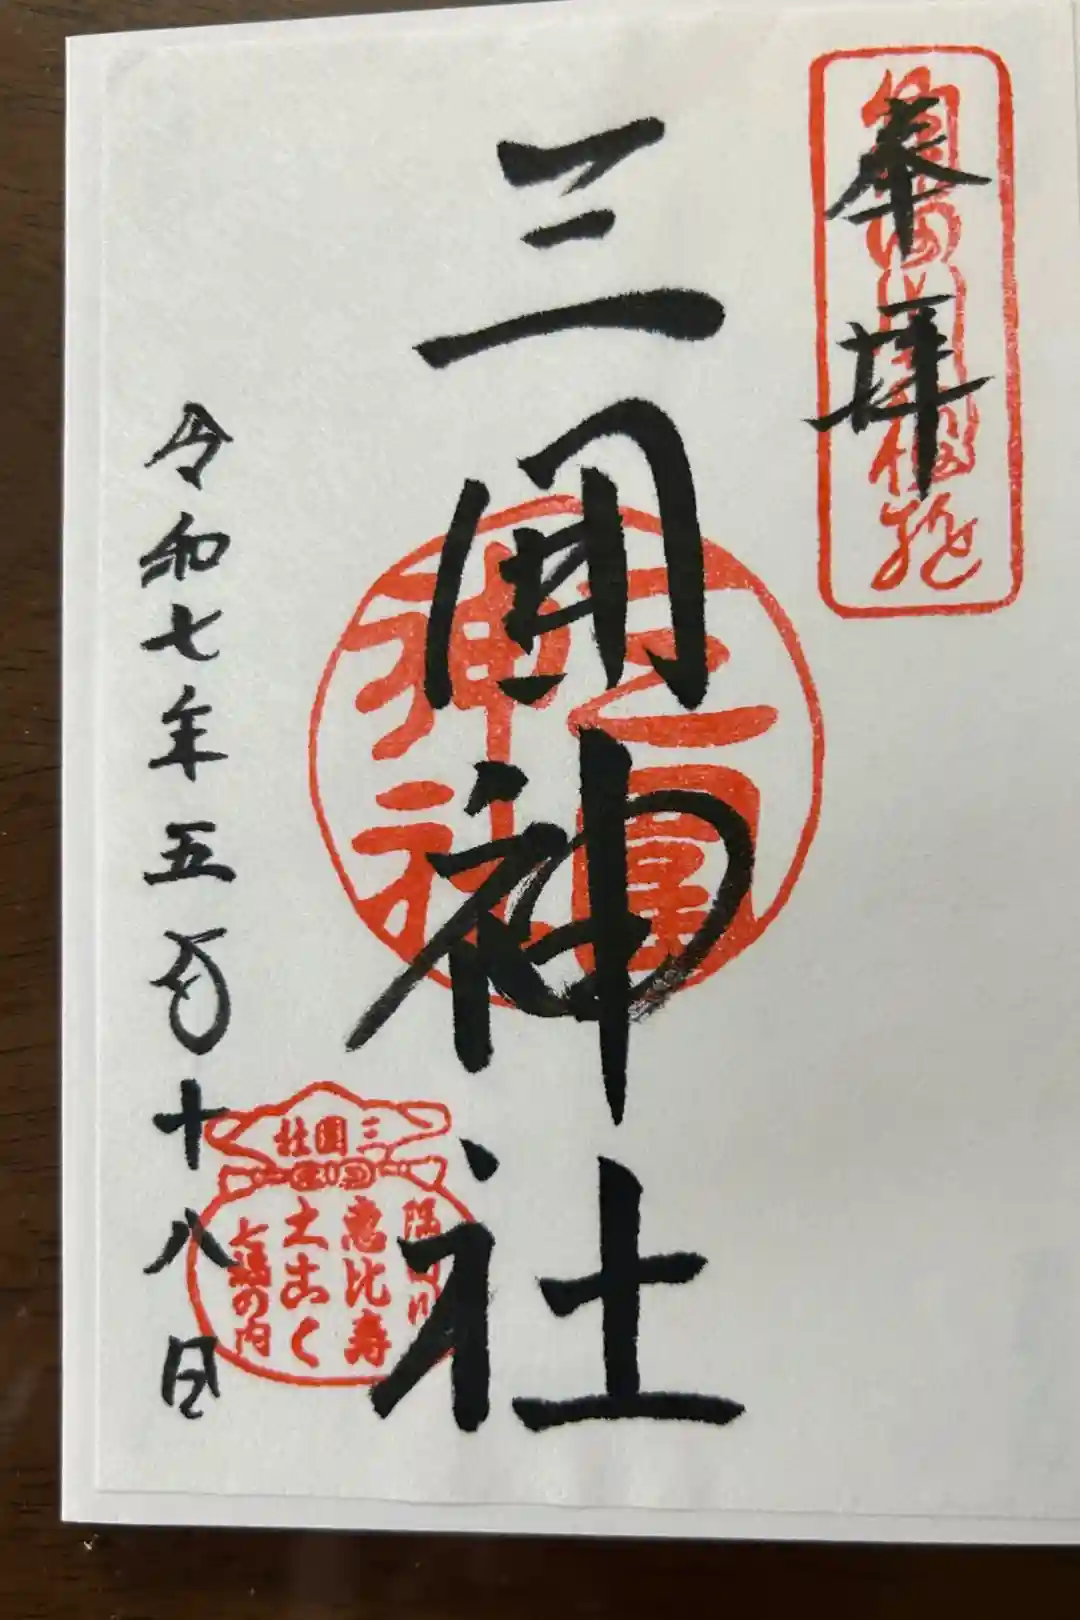 奉拝
三囲神社
三囲神社
三囲社
恵比寿
大こく
七福の内
令和七年五月十八日